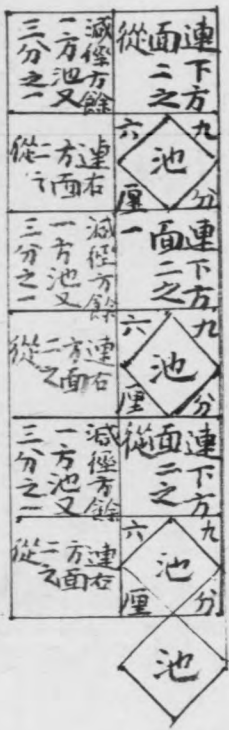 連下方
面二之
從
減徑方餘
一方池又
三分之一
九分
池
六厘
連右
方面
二之
從
連下方
面二之
一
減徑方餘
一方池又
三分之一
九分
池
六厘
連右
方面
二之
從
連下方
面二之
從
減徑方餘
一方池又
三分之一
九分
池
六厘
連右
方面
二之
從
池